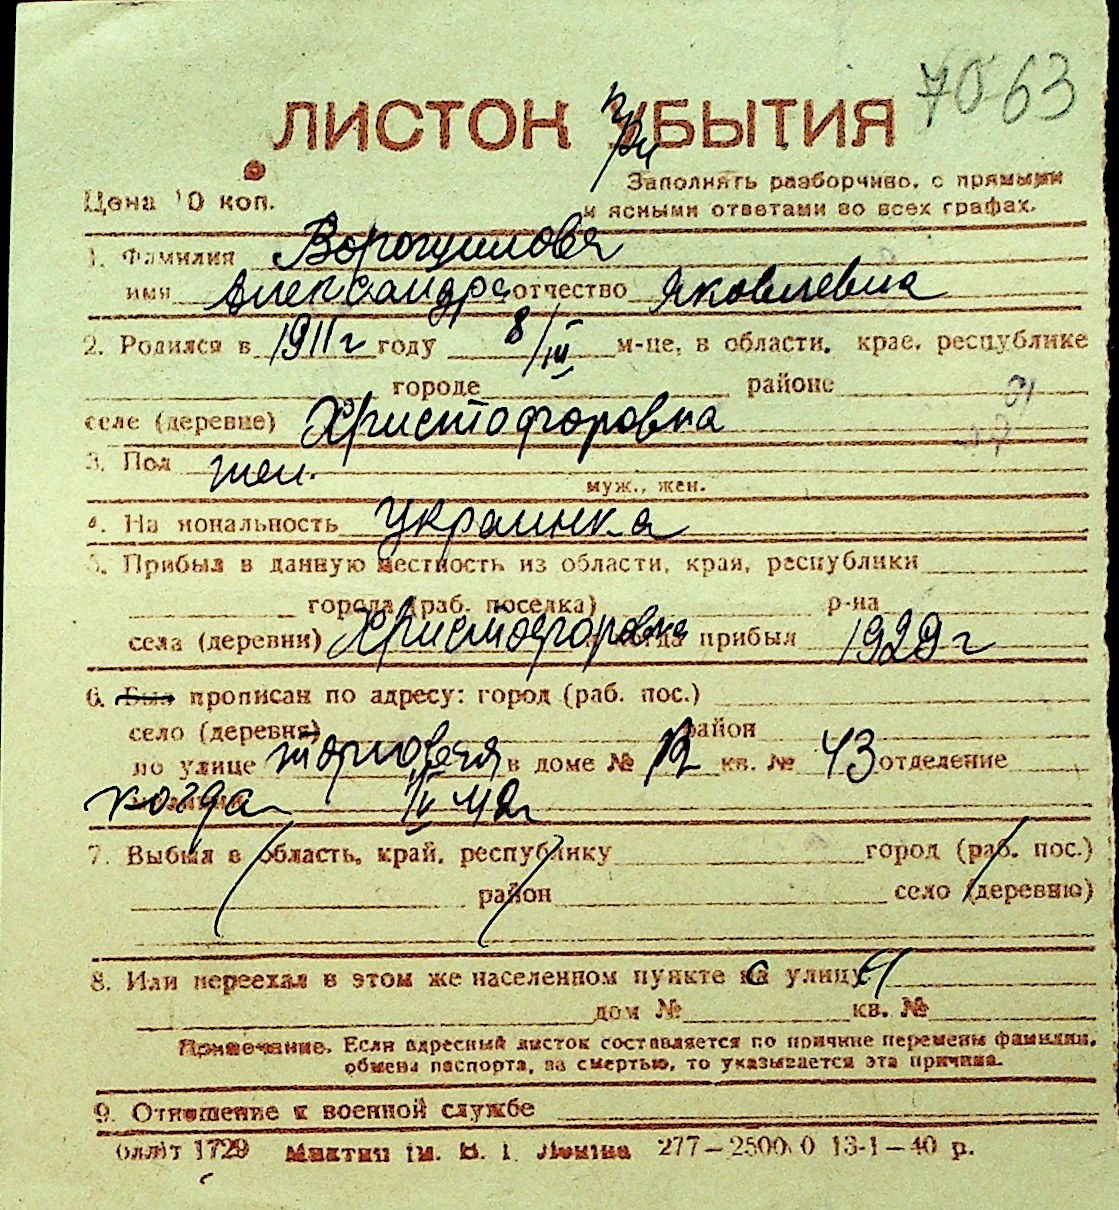 7063
ЛИСТОК УБЫТИЯ
при
Цена 10 коп.
Заполнять разборчиво, с прямыми
и ясными ответами во всех графах.
1. Фамилия Ворогушлова
имя Александра отчество Яковлевна
2. Родился в 1911 г году 8/III м-це, в области, крае, республике
городе районе
селе (деревне) Христофоровка
3. Пол жен.
муж., жен.
4. На иональность украинка
5. Прибыл в данную местность из области, края, республики
города (раб. поселка) р-на
села (деревни) Христофоровка когда прибыл 1929 г
6. Был прописан по адресу: город (раб. пос.)
село (деревня) район
по улице торговая в доме № 12 кв. № 43 отделение
когда IV 42г
7. Выбыл в область, край, республику город (раб. пос.)
район село (деревню)
8. Или переехал в этом же населенном пункте на улицу
дом № кв. №
Примечание. Если адресный листок составляется по причине перемены фамилии,
обмена паспорта, за смертью, то указывается эта причина.
9. Отношение к военной службе
1729 ім. В. І. Леніна 277—2500 0 13-1—40 р.